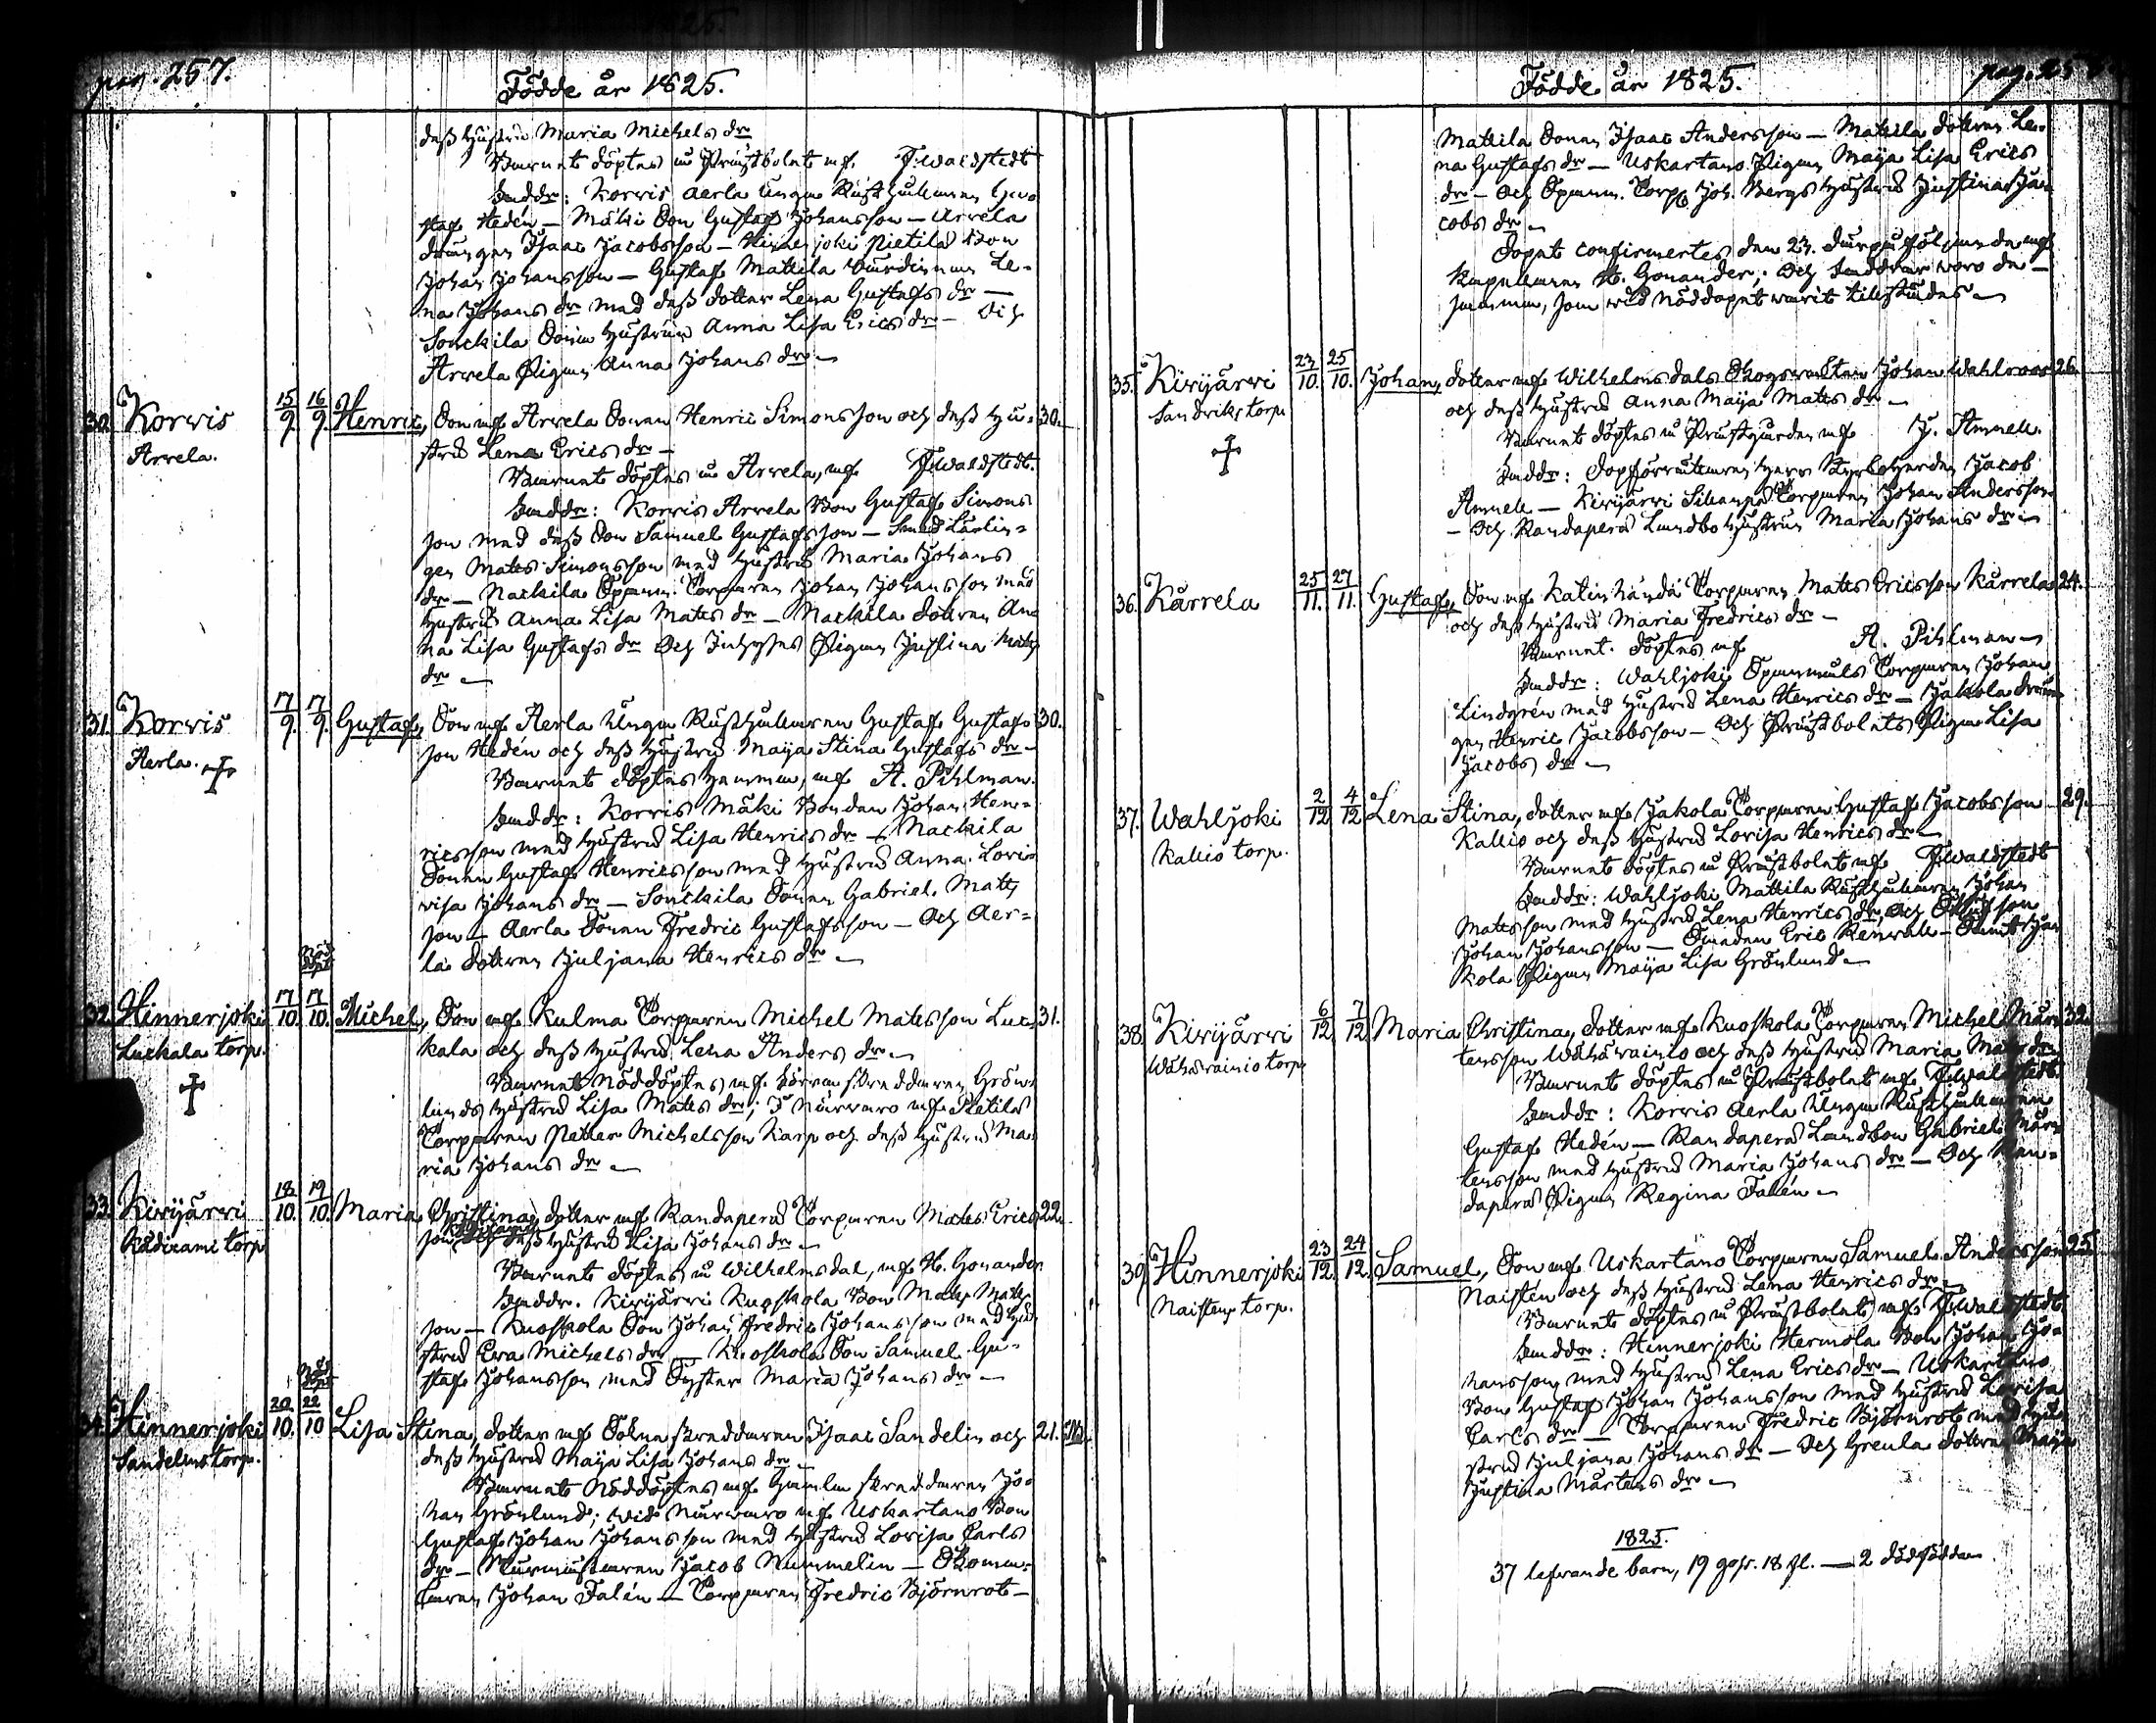 pag. 257.
Födde år 1825.
dess hustru Maria Michels dr
Barnet döptes i Prustbolet af F. Waldstedt
Faddr: Korvis Aerla Unga Rusthållaren Gu-
staf Hedén – Mäki Son Gustaf Johansson – Arvela
drängen Isaac Jacobsson – Hinnerjoki Pietilä Son
Johan Johansson – Gustaf Mattila Värdinnan Le-
na Johans dr med dess dotter Lena Gustafs dr –
Sonckila Sone hustrun Anna Lisa Erics dr – Och
Arvela Pigan Anna Johans dr –
30. Korvis 15/9. 16/9. Henric, Son af Arvela Sonen Henric Simonsson och dess hu- 30.
Arvela. stru Lena Erics dr –
Barnet döptes i Arvela, af F. Waldstedt.
Faddr: Korvis Arvela Bon Gustaf Simons
son med dess Son Samuel Gustafsson – Smeds Lärlin-
gen Matts Simonsson med hustru Maria Johans
dr – Nackila Spanm. Torparen Johan Johansson med
hustru Anna Lisa Matts dr – Nackila dottren An-
na Lisa Gustafs dr Och Pigan Justina Matts
dr –
31. Korvis 17/9. 17/9. Gustaf, Son af Aerla Unga Rusthållaren Gustaf Gustafs 30.
Aerla. son Hedén och dess hustru Maija Stina Gustafs dr –
Barnet döptes hemma, af A. Pihlman.
Faddr: Korvis Mäki Bonden Johan Hen-
ricsson med hustru Lisa Henrics dr – Nackila
Sonen Gustaf Henricsson med hustru Anna Lovi-
visa Johans dr – Sonckila Sonen Gabriel Matts
son – Aerla Sonen Fredric Gustafsson – Och Aer-
la dottren Juljana Henrics dr –
Nöd
döpt
32. Hinnerjoki 17/10. 17/10. Michel, Son af Kulma Torparen Michel Matsson Luc- 31.
Luckala torp. kala och dess hustru Lena Anders dr –
Barnet Nöddöptes af Sockenskreddaren Grön-
lunds hustru Lisa Matts dr; I Närvaro af Pietilä
Torparen Petter Michelsson Karp och dess hustru Ma-
ria Johans dr –
33. Kivijärvi 18/10. 19/10. Maria Christina, dotter af Randaperä Torparen Matts Erics 22.
Kädixami torp son och dess hustru Lisa Johans dr –
Barnet döptes i Wilhelmsdal, af H. Gonander
Faddr. Kivijärvi Kuoskola Bon Matts Matts
son – Kuoskola Son Johan Fredric Johansson med hu-
stru Eva Michels dr – Kuoskola Son Samuel Gu-
staf Johansson med Syster Maria Johans dr –
Nöd
döpt
34. Hinnerjoki 20/10. 22/10 Lisa Stina, dotter af Sokne skreddaren Isaac Sandelin och 21.
Sandelins torp. dess hustru Maija Lisa Johans dr –
Barnet Nöddöptes af Gamla skreddaren Jo-
han Grönlund; wid Närvaro af Uskartano Bon
Gustaf Johan Johansson med hustru Lovisa Carls
dr – Murmästaren Jacob Nummelin – Skoma-
karen Johan Falén – Torparen Fredric Björnrot –
Födde år 1825.
Mattila Sonen Isaac Andersson – Mattila dottren Le-
na Gustafs dr – Uskartano Pigan Maija Lisa Erics
dr – Och Spanm. Torp. Joh. Bergs hustru Justina Ja-
cobs dr –
Dopet confirmertes den 23. därpå följande af
Kapellanen H. Gonander; Och Faddrar voro de –
samma, som wid Nöddopet varit tilstädes –
35. Kivijärvi 23/10. 25/10. Johan, dotter af Wilhelmsdals Skogsvakten Johan Wahlroos 26.
Sandriks torp. och dess hustru Anna Maija Matts dr –
Barnet döptes i Prästgården af J. Amnell.
Faddr: Dopförrättaren Herr Kyrkoherden Jacob
Amnell – Kivijärvi Silanpä Torparen Johan Andersson
– Och Randaperä Landbo hustrun Maria Johans dr –
36. Kärrela 25/11. 27/11. Gustaf, Son af Katinhändä Torparen Matts Ericsson Kärrela 24.
och dess hustru Maria Fredrics dr –
Barnet döptes af A. Pihlman –
Faddr: Wahljoki Spannmåls Torparen Johan
Lindgrén med hustru Lena Henrics dr – Jakola drän-
gen Henric Jacobsson – Och Prustbolets Pigan Lisa
Jacobs dr –
37. Wahljoki 2/12 4/12 Lena Stina, dotter af Jakola Torparen Gustaf Jacobsson 29.
Kallio torp. Kallio och dess hustru Lovisa Henrics dr –
Barnet döptes i Prustbolet af F. Waldstedt
Faddr: Wahljoki Mattila Rusthållaren Johan
Matsson med hustru Lena Henrics dr, Och
Johan Johansson – Smeden Eric Renvall – Samt Ja-
kola Pigan Maija Lisa Grönlund –
38. Kivijärvi 6/12. 7/12 Maria Christina, dotter af Kuoskola Torparen Michel Mår- 32.
Wähävainio torp. tensson Wähävainio och dess hustru Maria Matts dr
Barnet döptes i Prustbolet af F. Waldstedt
Faddr: Korvis Aerla Unga Rusthållaren
Gustaf Hedén – Randaperä Landbon Gabriel Mår-
tensson med hustru Maria Johans dr – Och Ran-
daperä Pigan Regina Falén –
39. Hinnerjoki 23/12. 24/12. Samuel, Son af Uskartano Torparen Samuel Andersson 25.
Naistens torp. Naisten och dess hustru Lena Henrics dr –
Barnet döptes i Prustbolet af F. Waldstedt
Faddr: Hinnerjoki Hermola Bon Johan Jo-
hansson med hustru Lena Erics dr – Uskartano
Bon Gustaf Johan Johansson med hustru Lovisa
Carls dr – Torparen Fredric Björnrot med hu-
stru Juljana Johans dr – Och Greula dottren Maija
Justina Mårtens dr –
1825.
37 lefvande barn, 19 goss. 18 fl. — 2 dödfödda